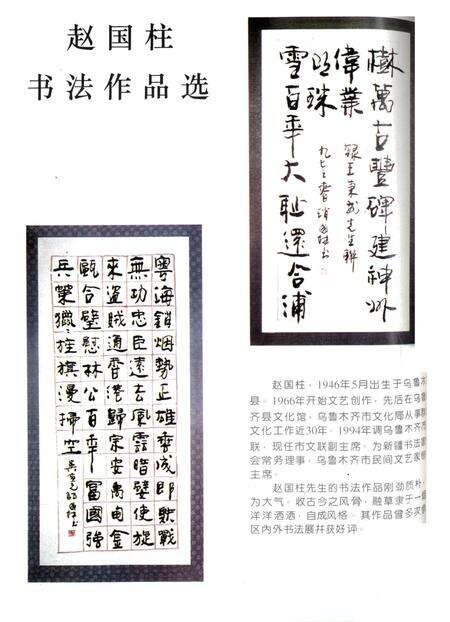 赵国柱
书法作品选
樹萬古豐碑建神州
偉業
雪百年大耻還合浦
明珠
先生聯
粵海銷烟勢正雄 成即 戰
無功忠臣遠去風雲暗 使旋
來盜賊通香港歸宗安禹甸金
甌合璧慰林公百年富國強
兵業獵獵旌旗漫掃空
赵国柱，1946年5月出生于乌鲁木
县。1966年开始文艺创作，先后在乌鲁
齐县文化馆，乌鲁木齐市文化局从事群
文化工作近30年，1994年调乌鲁木齐市
联，现任市文联副主席。为新疆书法
会常务理事，乌鲁木齐市民间文艺家
主席。
赵国柱先生的书法作品刚劲质朴，
为大气。收古今之风骨，融草隶于一
洋洋洒洒，自成风格。其作品曾多次
区内外书法展并获好评。